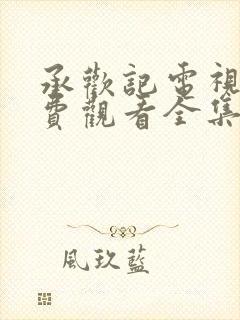 承歡記電視
費觀看全集
風玖藍